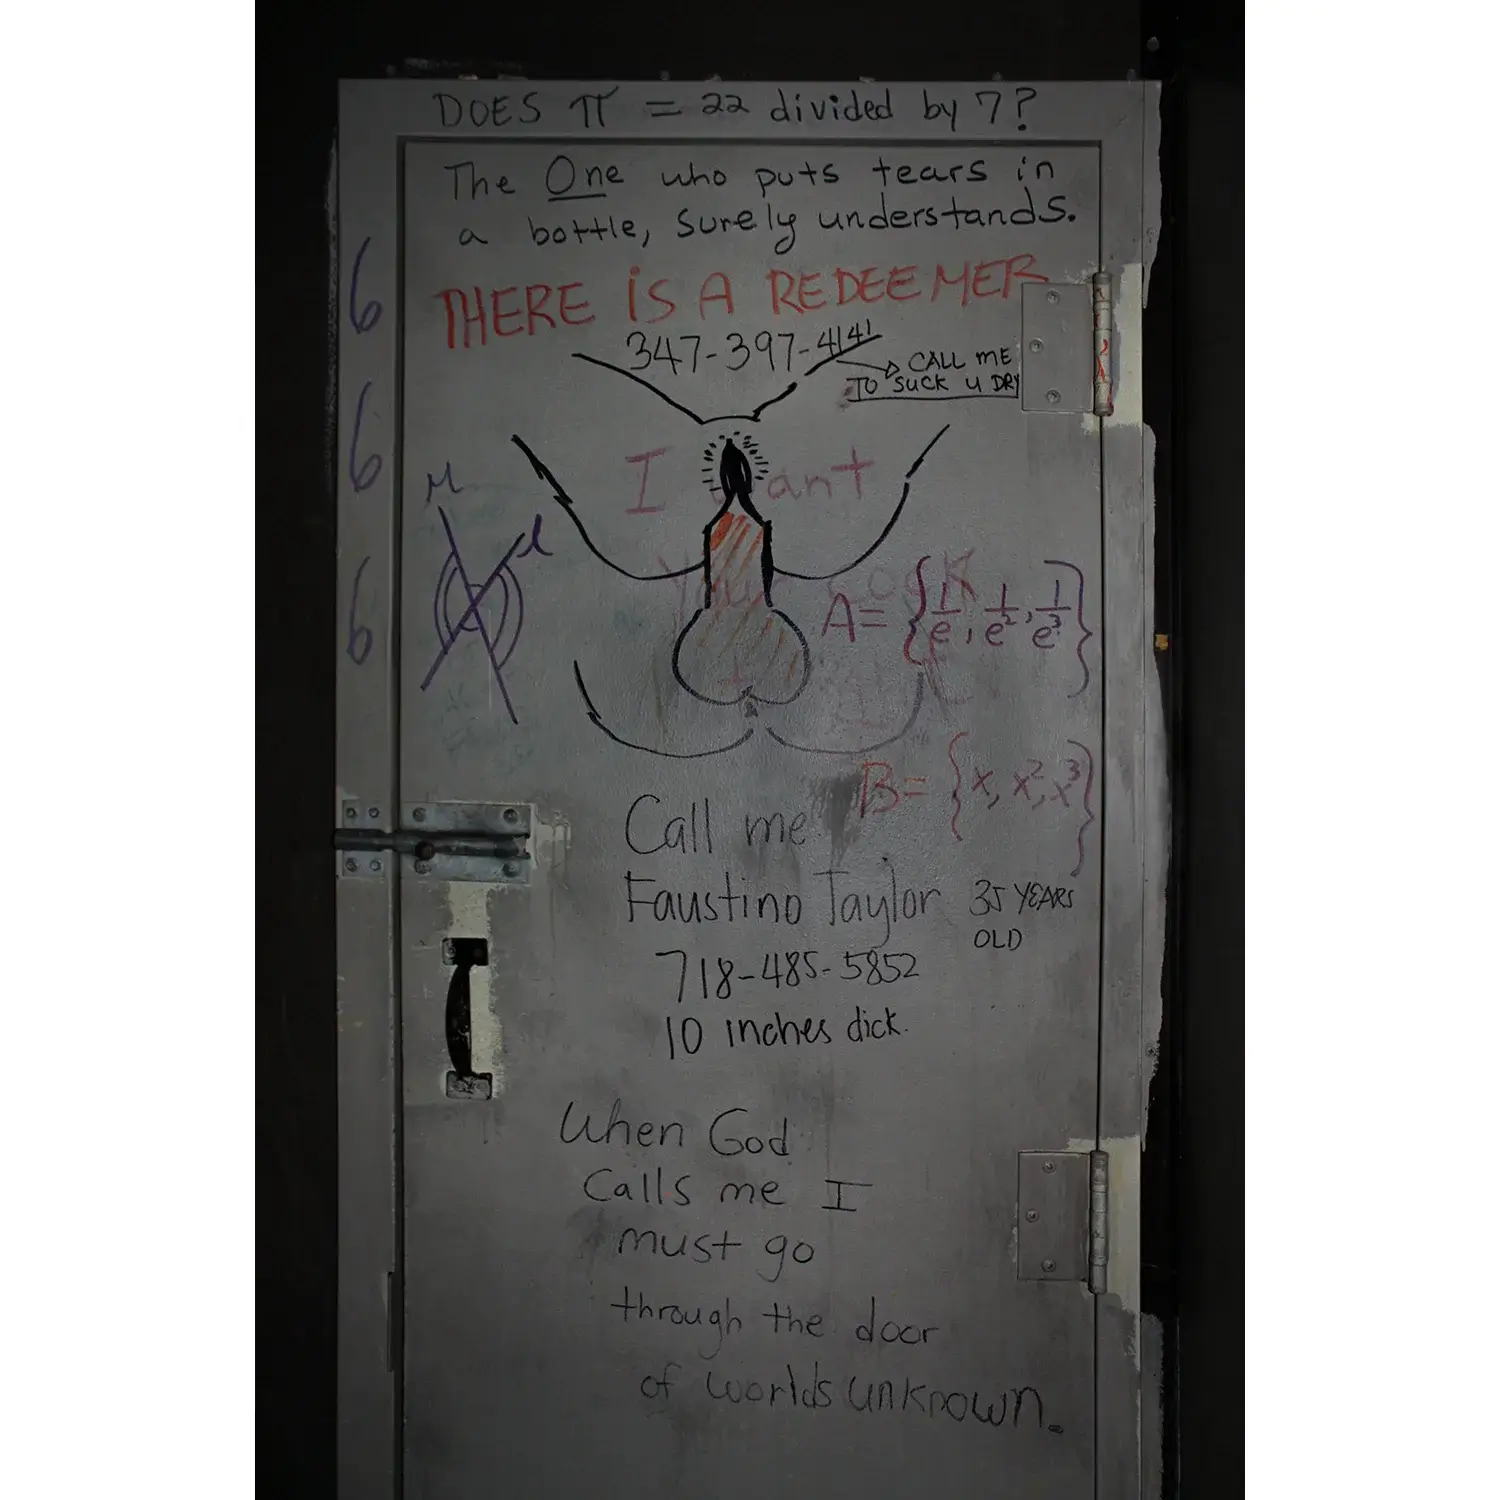 DOES π = 22 divided by 7?
The One who puts tears in
a bottle, surely understands.
THERE iS A REDEEMER
6
6
6
347-397-4141
CALL ME
TO SUCK U DRY
I want
Your COCK
A= {1/e, 1/e², 1/e³}
B= {x, x², x³}
Call me
Faustino Taylor 35 YEARS
OLD
718-485-5852
10 inches dick.
When God
Calls me I
must go
through the door
of worlds unknown.